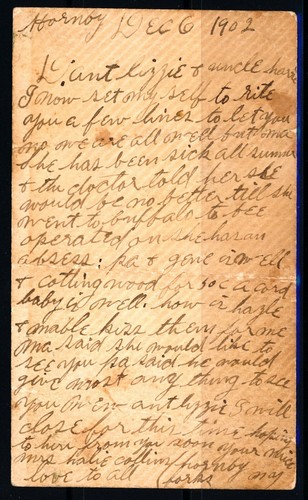 Hornby Dec 6 1902
Dant lizzie & uncle
I now set my self to rite
you a few lines to let you
no we are all well but ma
she has been sick all summer
& the doctor told her she
would be no better till she
went to buffalo to bee
operated on she has an
absess: pa & gene is well
& cotting wood for 50c a cord
baby is well. how is hazle
& mable kiss them for me
ma said she would like to
see you pa said he would
give most any thing to see
you wew ant lizzie I will
close for this time hoping
to here from you soon your
mrs collin hornby
love to all forks ny